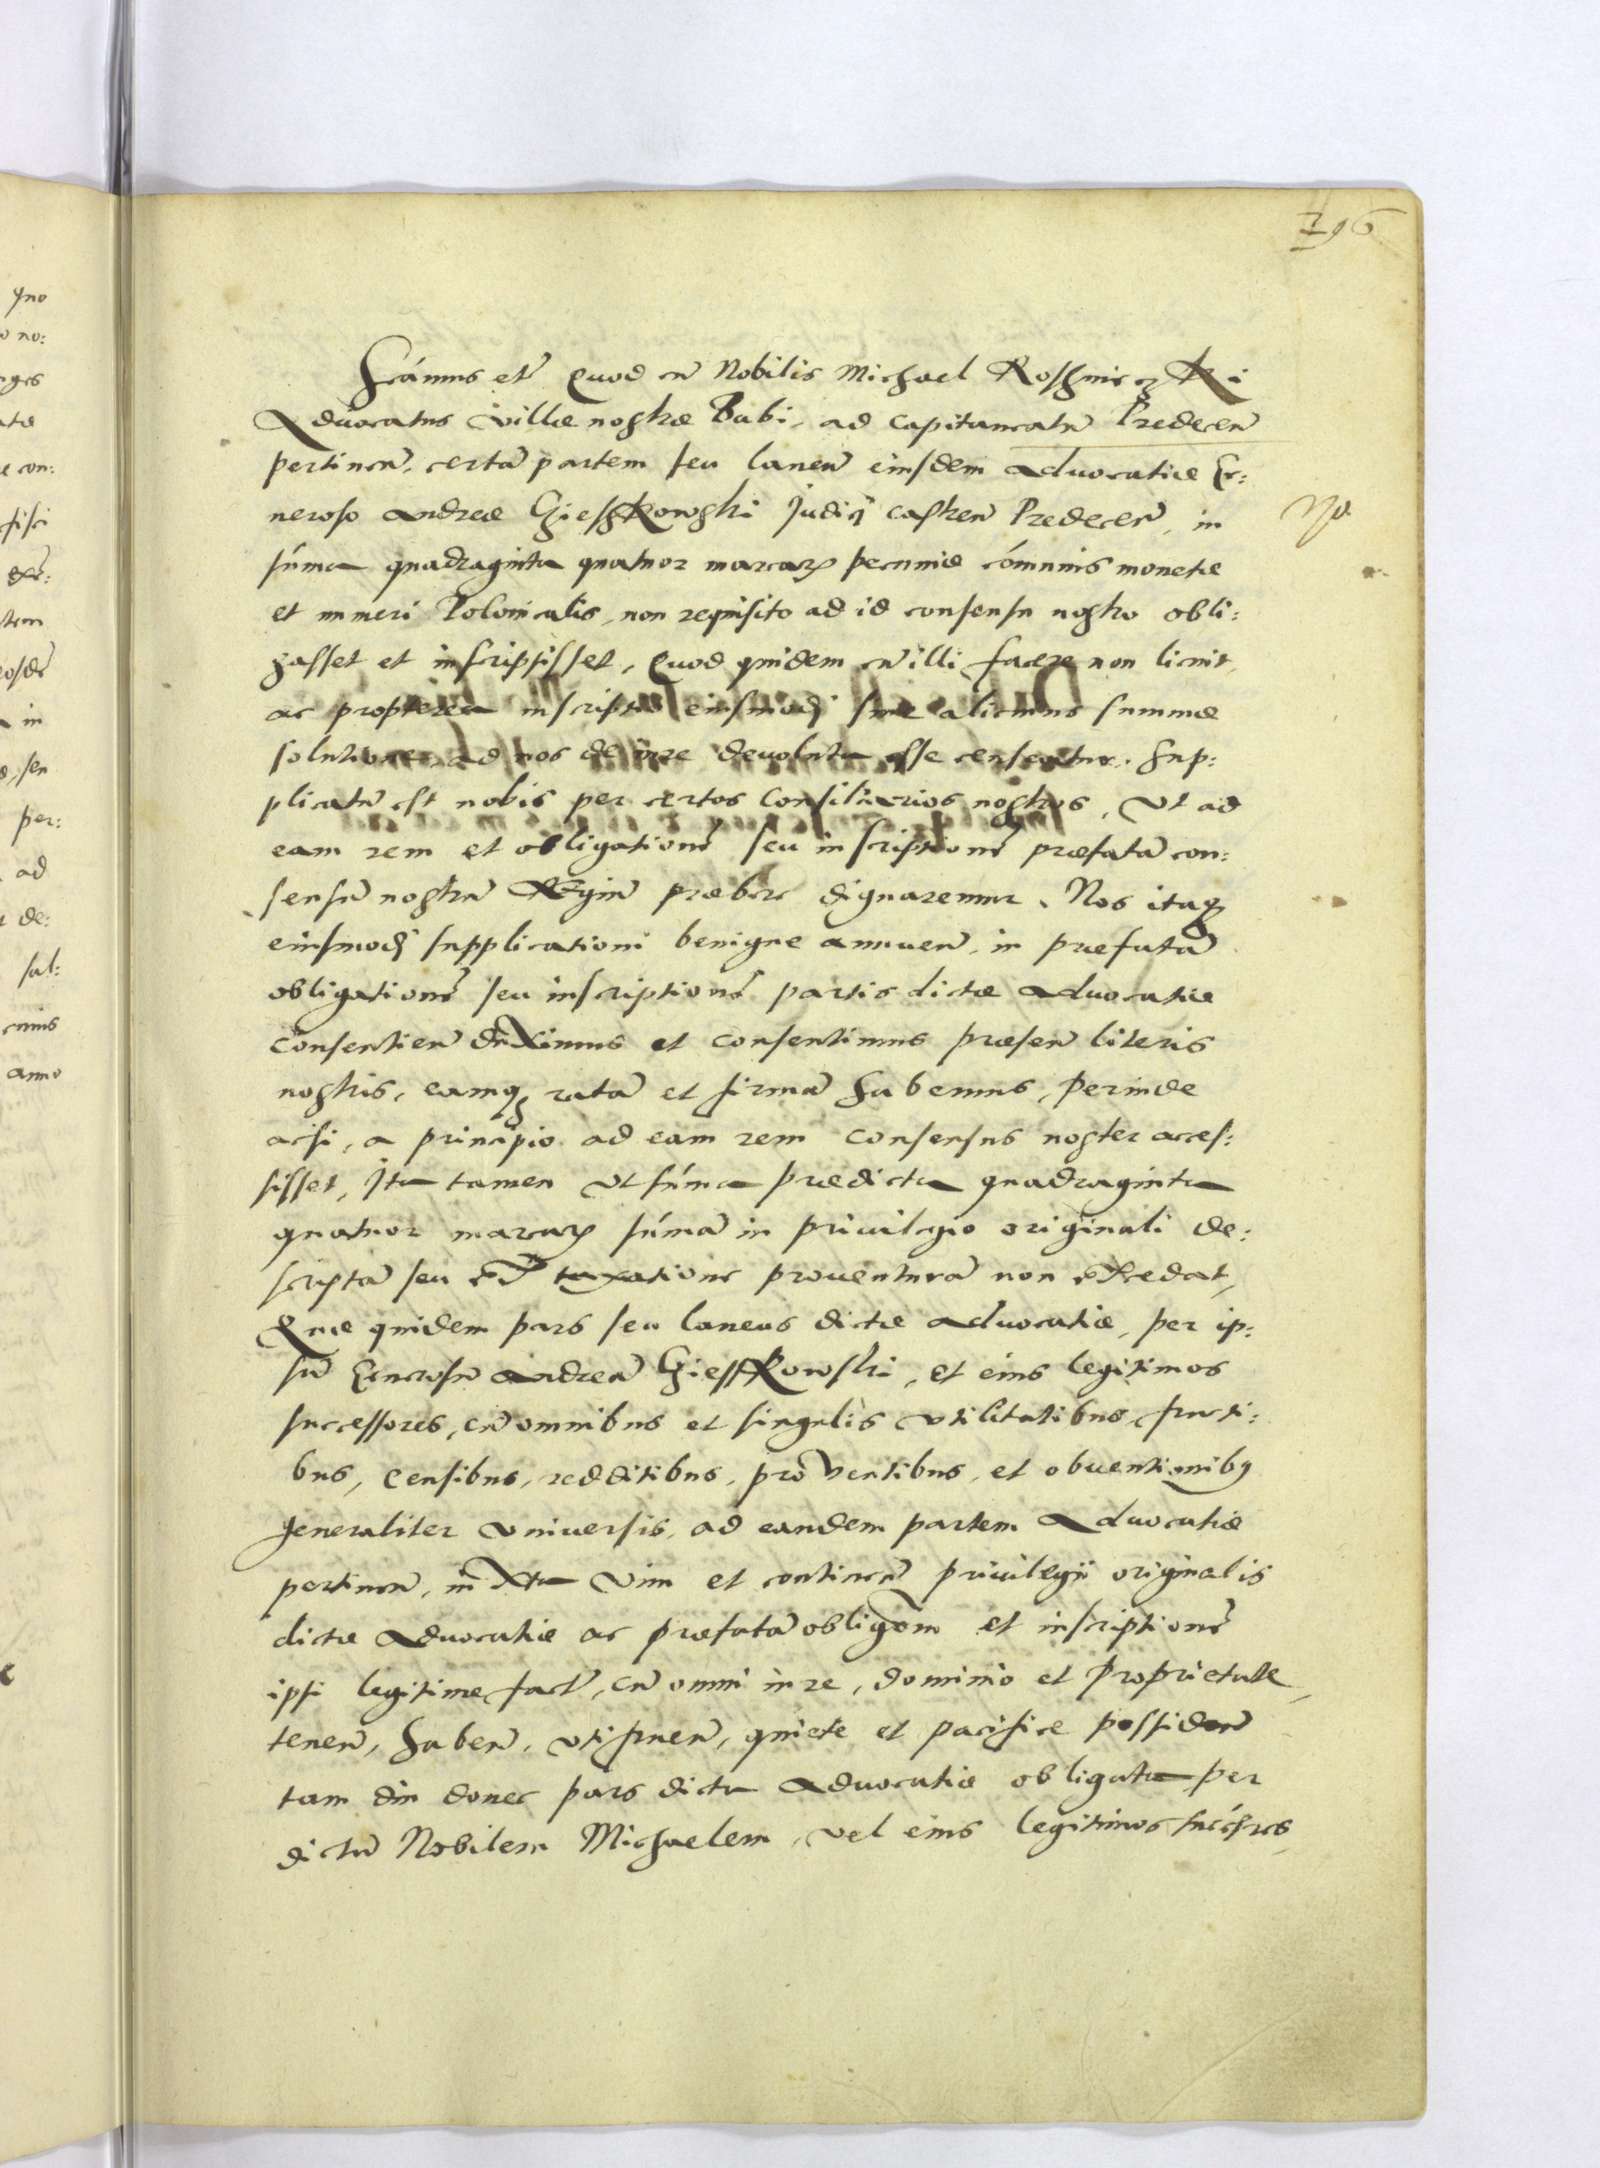 196
Scámus etc̃ Quod cũ Nobilis Michael Roshniczki
Aduocatus villæ nostræ Babi, ad Capitaneatũ Predecen̄
pertinen̄, certã partem seu laneũ eiusdem Aduocatiæ Ge:
neroso Andreæ Ghieskowski Judicj castren̄ Predecen̄, in
súma quadraginta quatuor marcarȝ pecuniæ cómunis monetæ
et numeri Polonicalis, non requisito ad id consensu nostro obli:
gasset et inscripsisset, Quod quidem cũ illi facere non licuit,
ac propterea inscriptio eiusmodj sine alicuius summæ
solutione, ad nos de iure deuoluta esse censeatur. Sup:
plicatũ est nobis per certos Consiliarios nostros, Vt ad
eam rem et obligationẽ seu inscriptionẽ præfatã con:
sensũ nostrũ Regiũ præbere dignaremur. Nos itaq3
eiusmodj supplicationi benigne annuen̄, in præfatã
obligationẽ seu inscriptionẽ partis dictæ Aduocatiæ
consentien̄ duximus et consentimus præsen̄ literis
nostris, eamq3 ratã et firmã habemus, perinde
acsi, a principio ad eam rem consensus noster acces:
sisset, Ita tamen vt súma prædicta quadraginta
quatuor marcarȝ súmã in priuilegio originali de:
scriptã seu taxatione prouenturã non excedat,
Quæ quidem pars seu laneus dictæ Aduocatiæ, per ip:
sũ Generosũ Andreã Ghiesskowski, et eius legitimos
successores, cũ omnibus et singulis vtilitatibus, fructi:
bus, censibus, redditibus, prouentibus, et obuentionibȝ
generaliter vniuersis, ad eandem partem Aduocatiæ
pertinen̄, iuxta vim et continen̄ priuilegii originalis
dictæ Aduocatiæ ac præfatã obligõem et inscriptionẽ
ipsi legitime fact̃, cũ omni iure, dominio et proprietate,
tenen̄, haben̄, vtifruen̄, quiete et pacifice possiden̄
tam diu donec pars dicta Aduocatiæ obligata per
dictũ Nobilem Michaelem, vel eius legitimos succ̃sres,